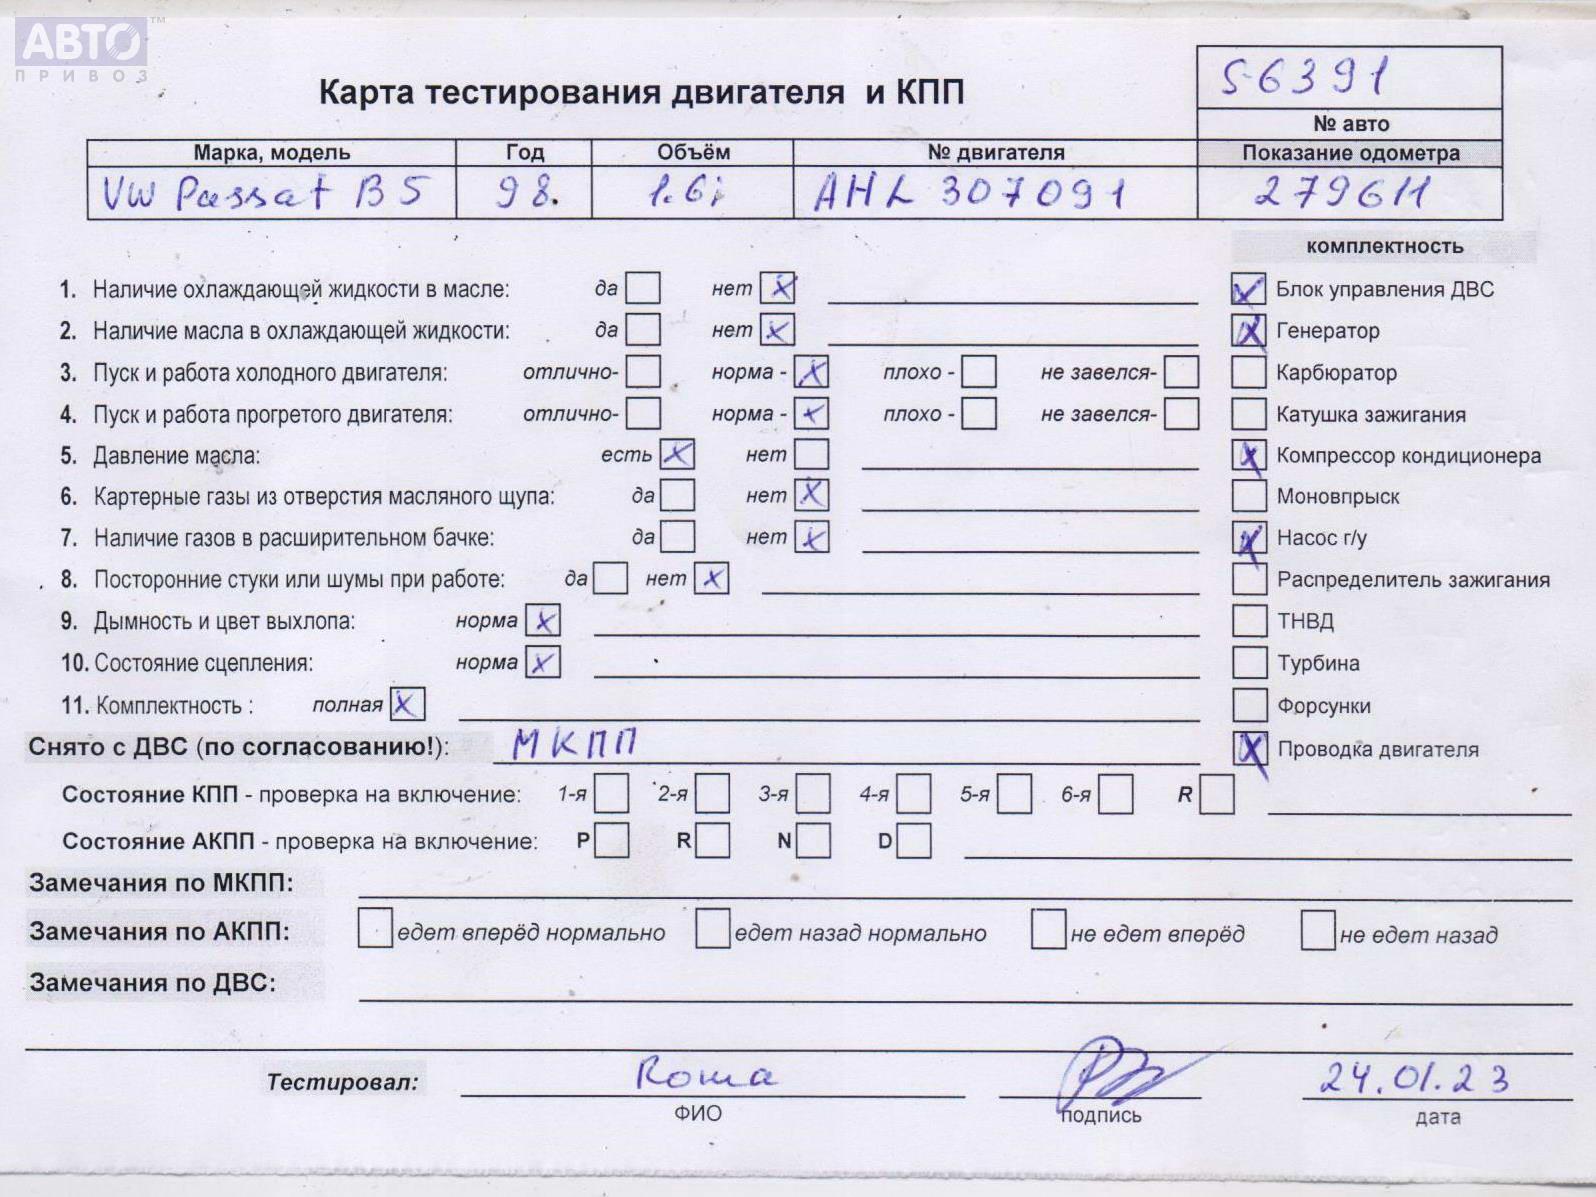 АВТО™
ПРИВОЗ
56391
Карта тестирования двигателя и КПП
№ авто
Марка, модель Год Объём № двигателя Показание одометра
VW Passat B5 98. 1.6i AHL 307091 279611
комплектность
1. Наличие охлаждающей жидкости в масле: да нет Блок управления ДВС
2. Наличие масла в охлаждающей жидкости: да нет Генератор
3. Пуск и работа холодного двигателя: отлично- норма - плохо - не завелся- Карбюратор
4. Пуск и работа прогретого двигателя: отлично- норма - плохо - не завелся- Катушка зажигания
5. Давление масла: есть нет Компрессор кондиционера
6. Картерные газы из отверстия масляного щупа: да нет Моновпрыск
7. Наличие газов в расширительном бачке: да нет Насос г/у
8. Посторонние стуки или шумы при работе: да нет Распределитель зажигания
9. Дымность и цвет выхлопа: норма ТНВД
10. Состояние сцепления: норма Турбина
11. Комплектность : полная Форсунки
Снято с ДВС (по согласованию!): МКПП Проводка двигателя
Состояние КПП - проверка на включение: 1-я 2-я 3-я 4-я 5-я 6-я R
Состояние АКПП - проверка на включение: P R N D
Замечания по МКПП:
Замечания по АКПП: едет вперёд нормально едет назад нормально не едет вперёд не едет назад
Замечания по ДВС:
Тестировал: Рома 24.01.23
ФИО подпись дата